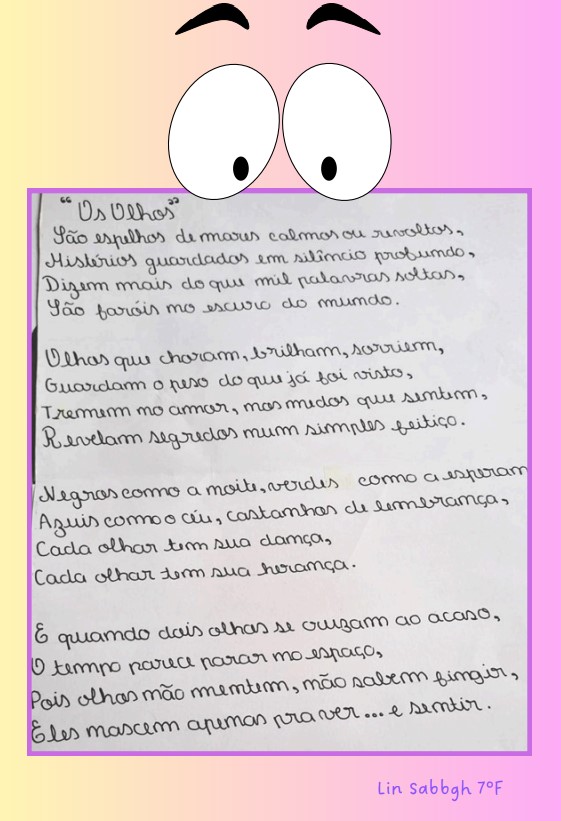 "Os Olhos"
São espelhos de mares calmos ou revoltos,
Mistérios guardados em silêncio profundo,
Dizem mais do que mil palavras soltas,
São faróis no escuro do mundo.
Olhos que choram, brilham, sorriem,
Guardam o peso do que já foi visto,
Tremem no amor, nos medos que sentem,
Revelam segredos num simples feitiço.
Negros como a noite, verdes como a esperan
Azuis como o céu, castanhos de lembrança,
Cada olhar tem sua dança,
Cada olhar tem sua herança.
E quando dois olhos se cruzam ao acaso,
O tempo parece parar no espaço,
Pois olhos não mentem, não sabem fingir,
Eles nascem apenas pra ver... e sentir.
Lin Sabbgh 7ºF